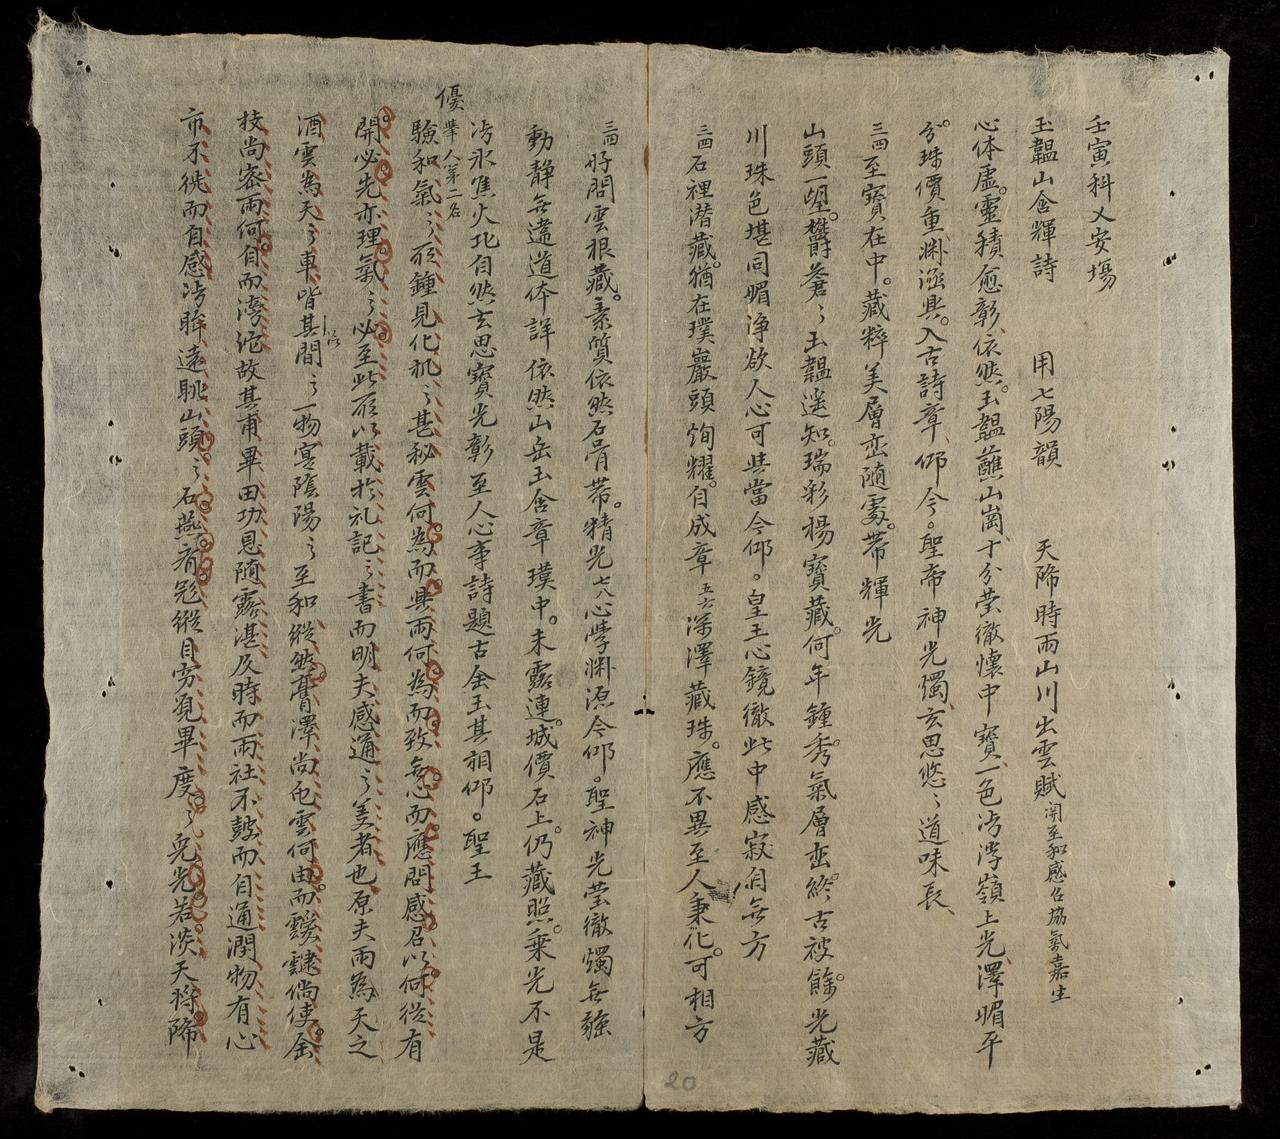 壬寅科乂安場
玉韞山含輝詩 用七陽韻 天降時雨山川出雲賦 開至和感召協氣嘉生
心体虛靈積愈彰依然玉韞蘸山崗十分莹徹懷中寶一色浮嶺上光澤媚平
分珠價重渊涵具入古詩章仰今聖帝神光燭玄思悠〻道味長
三四至寶在中藏粹美層峦随處帯輝光
山頭一望欝蒼〻玉韞遥知瑞彩揚寶藏何年鍾秀氣層峦終古被餘光藏
川珠色堪同媚浄欲人心可共當今仰皇王心鏡徹此中感寂自無方
三四石裡潜藏猶在璞巖頭炯耀自成章五六深澤藏珠應不異至人秉化可相方
三四好問雲根藏素質依然石骨帯精光七八心學渊源今仰聖神光莹徹燭無疆
動静無違道体詳依然山岳玉含章璞中未露連城價石上仍藏照乗光不是
冰焦火北自然玄思寶光彰至人心事詩題古金玉其相仰聖王
優 舉人第二名
驗和氣〻所鍾見化机〻甚秘雲何為而興雨何為而致無心而應問感召以何從有
開必先亦理氣〻必至此所以載於礼記〻書而明夫感通〻美者也原夫雨為天之
酒雲為天〻車皆其間〻一物寔隂陽〻至和縱然膏澤尚屯雲何由而靉靆倘使金
枝尚密雨何自而滂沱故其甫畢田功恩随露湛及時而雨社不鼓而自通潤物有心
市不徙而自感眸遠眺山頭〻石燕看窮覓畢度〻兎光若淡天將降